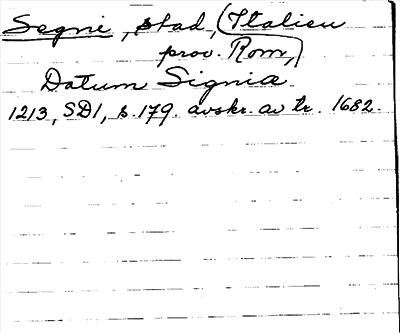 Segni, stad, (Italien
prov. Rom,)
Datum Signia
1213, SD1, s. 179. avskr. av tr. 1682.